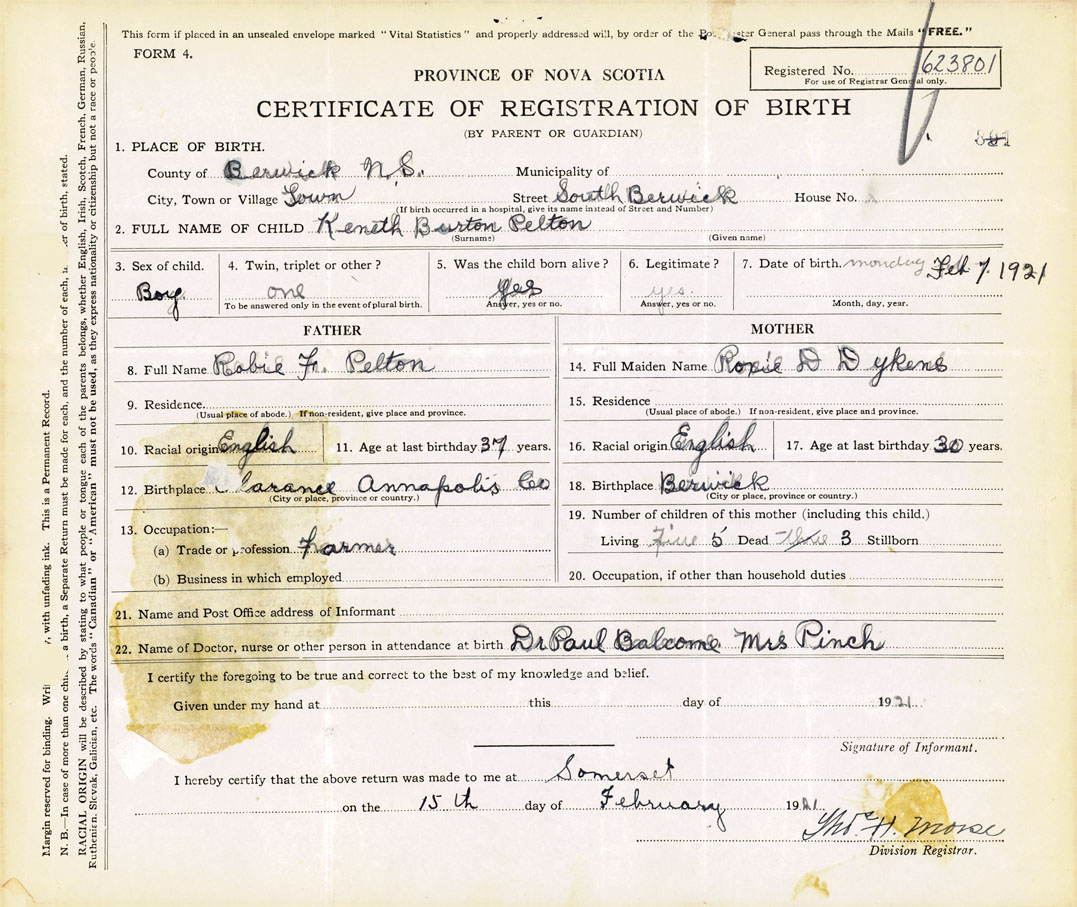 This form if placed in an unsealed envelope marked "Vital Statistics" and properly addressed will, by order of the Postmaster General pass through the Mails "FREE."
FORM 4.
PROVINCE OF NOVA SCOTIA
Registered No. 623801
For use of Registrar General only.
CERTIFICATE OF REGISTRATION OF BIRTH
(BY PARENT OR GUARDIAN)
801
1. PLACE OF BIRTH.
County of Berwick N.S. Municipality of
City, Town or Village Town Street South Berwick House No.
(If birth occurred in a hospital, give its name instead of Street and Number)
2. FULL NAME OF CHILD Keneth Burton Pelton
(Surname) (Given name)
3. Sex of child. 4. Twin, triplet or other? 5. Was the child born alive? 6. Legitimate? 7. Date of birth. monday Feb 7. 1921
Boy one Yes yes.
To be answered only in the event of plural birth. Answer, yes or no. Answer, yes or no. Month, day, year.
FATHER MOTHER
8. Full Name Robie Fr. Pelton 14. Full Maiden Name Roxie D Dykens
9. Residence 15. Residence
(Usual place of abode.) If non-resident, give place and province. (Usual place of abode.) If non-resident, give place and province.
10. Racial origin English 11. Age at last birthday 37 years. 16. Racial origin English 17. Age at last birthday 30 years.
12. Birthplace Clarance Annapolis Co 18. Birthplace Berwick
(City or place, province or country.) (City or place, province or country.)
13. Occupation:— 19. Number of children of this mother (including this child.)
(a) Trade or profession Farmer Living Five 5 Dead three 3 Stillborn
(b) Business in which employed 20. Occupation, if other than household duties
21. Name and Post Office address of Informant
22. Name of Doctor, nurse or other person in attendance at birth Dr Paul Balcome Mrs Pinch
I certify the foregoing to be true and correct to the best of my knowledge and belief.
Given under my hand at this day of 1921.
Signature of Informant.
I hereby certify that the above return was made to me at Somerset
on the 15th day of February 1921.
Thos. H. Morse
Division Registrar.
Margin reserved for binding. with unfading ink. This is a Permanent Record.
N. B.—In case of more than one a birth, a Separate Return must be made for each, and the number of each, of birth, stated.
RACIAL ORIGIN will be described by stating to what people or tongue each of the parents belongs, whether English, Irish, Scotch, French, German, Russian,
Ruthenian, Slovak, Galician, etc. The words "Canadian" or "American" must not be used, as they express nationality or citizenship but not a race or people.